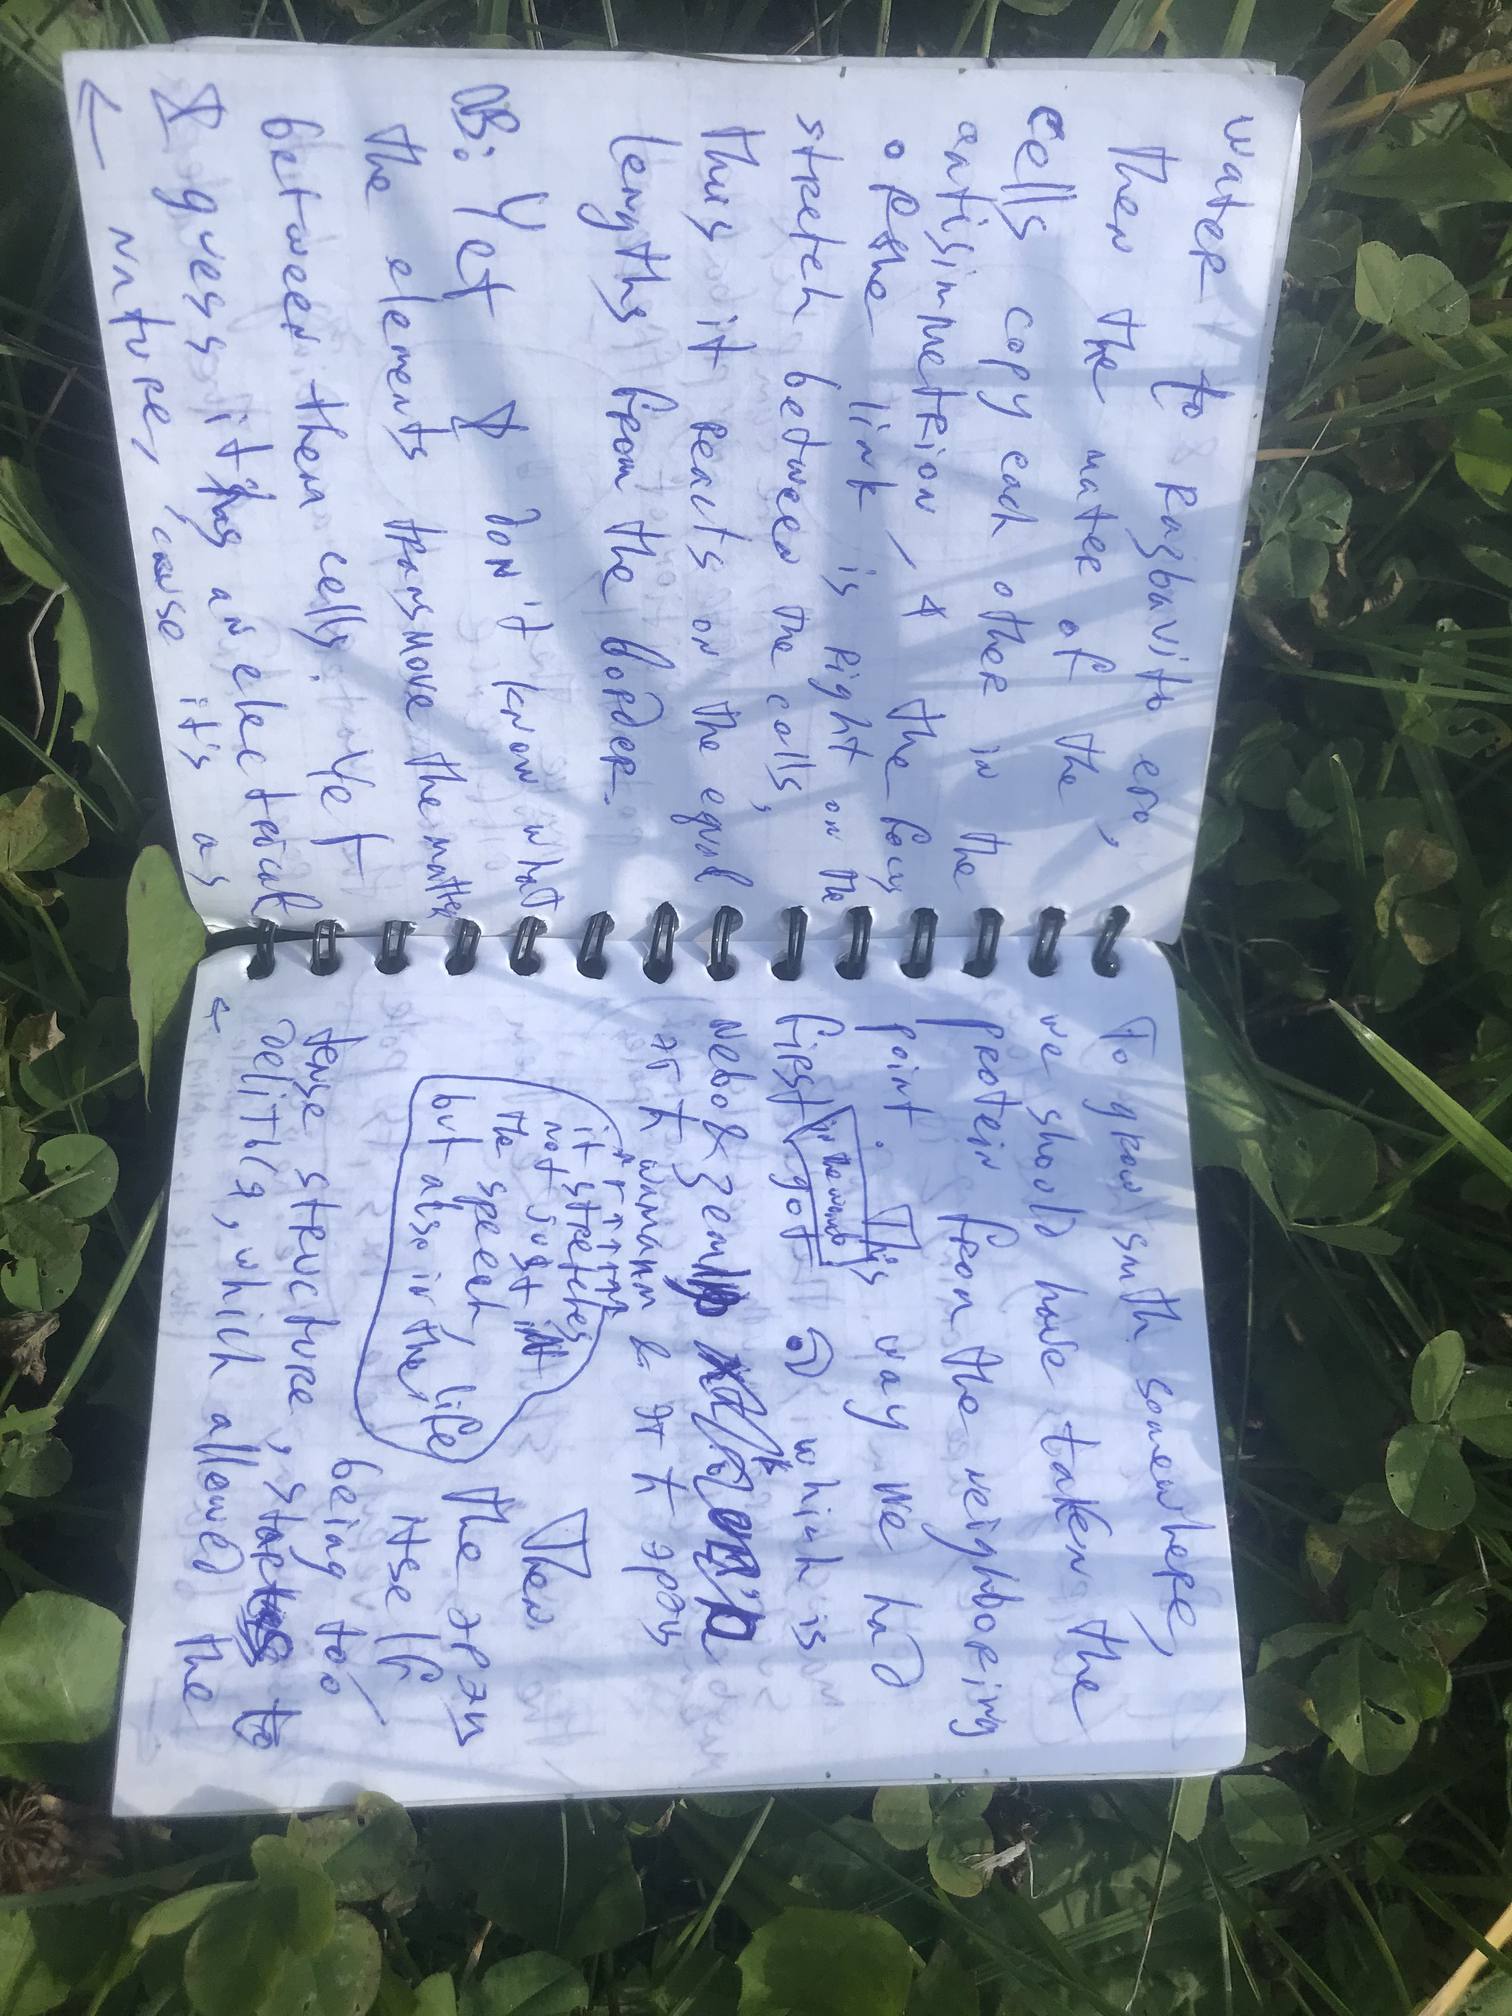 water to razbavitь ero,
Then the matter of the
cells copy each other in the
antisimmetrion, & the facy
of the link is right on the
stretch between the cells,
this it reacts on the equal
lengths from the border.
OB: Yet I don't know what
the elements transmove the matter
between them cells. Yet
I guess it's an electrical
← nature, cause it's as
To grow smth somewhere,
we should have taken the
protein from the neighboring
point. This way we had
first got which is
in the womb
nebo & zemlya
эт
& эт
Then
it stretches
not just in
the speech, life
but also in the
the
itself
being too
tense structure, starts to
delitьcя, which allowed the
←